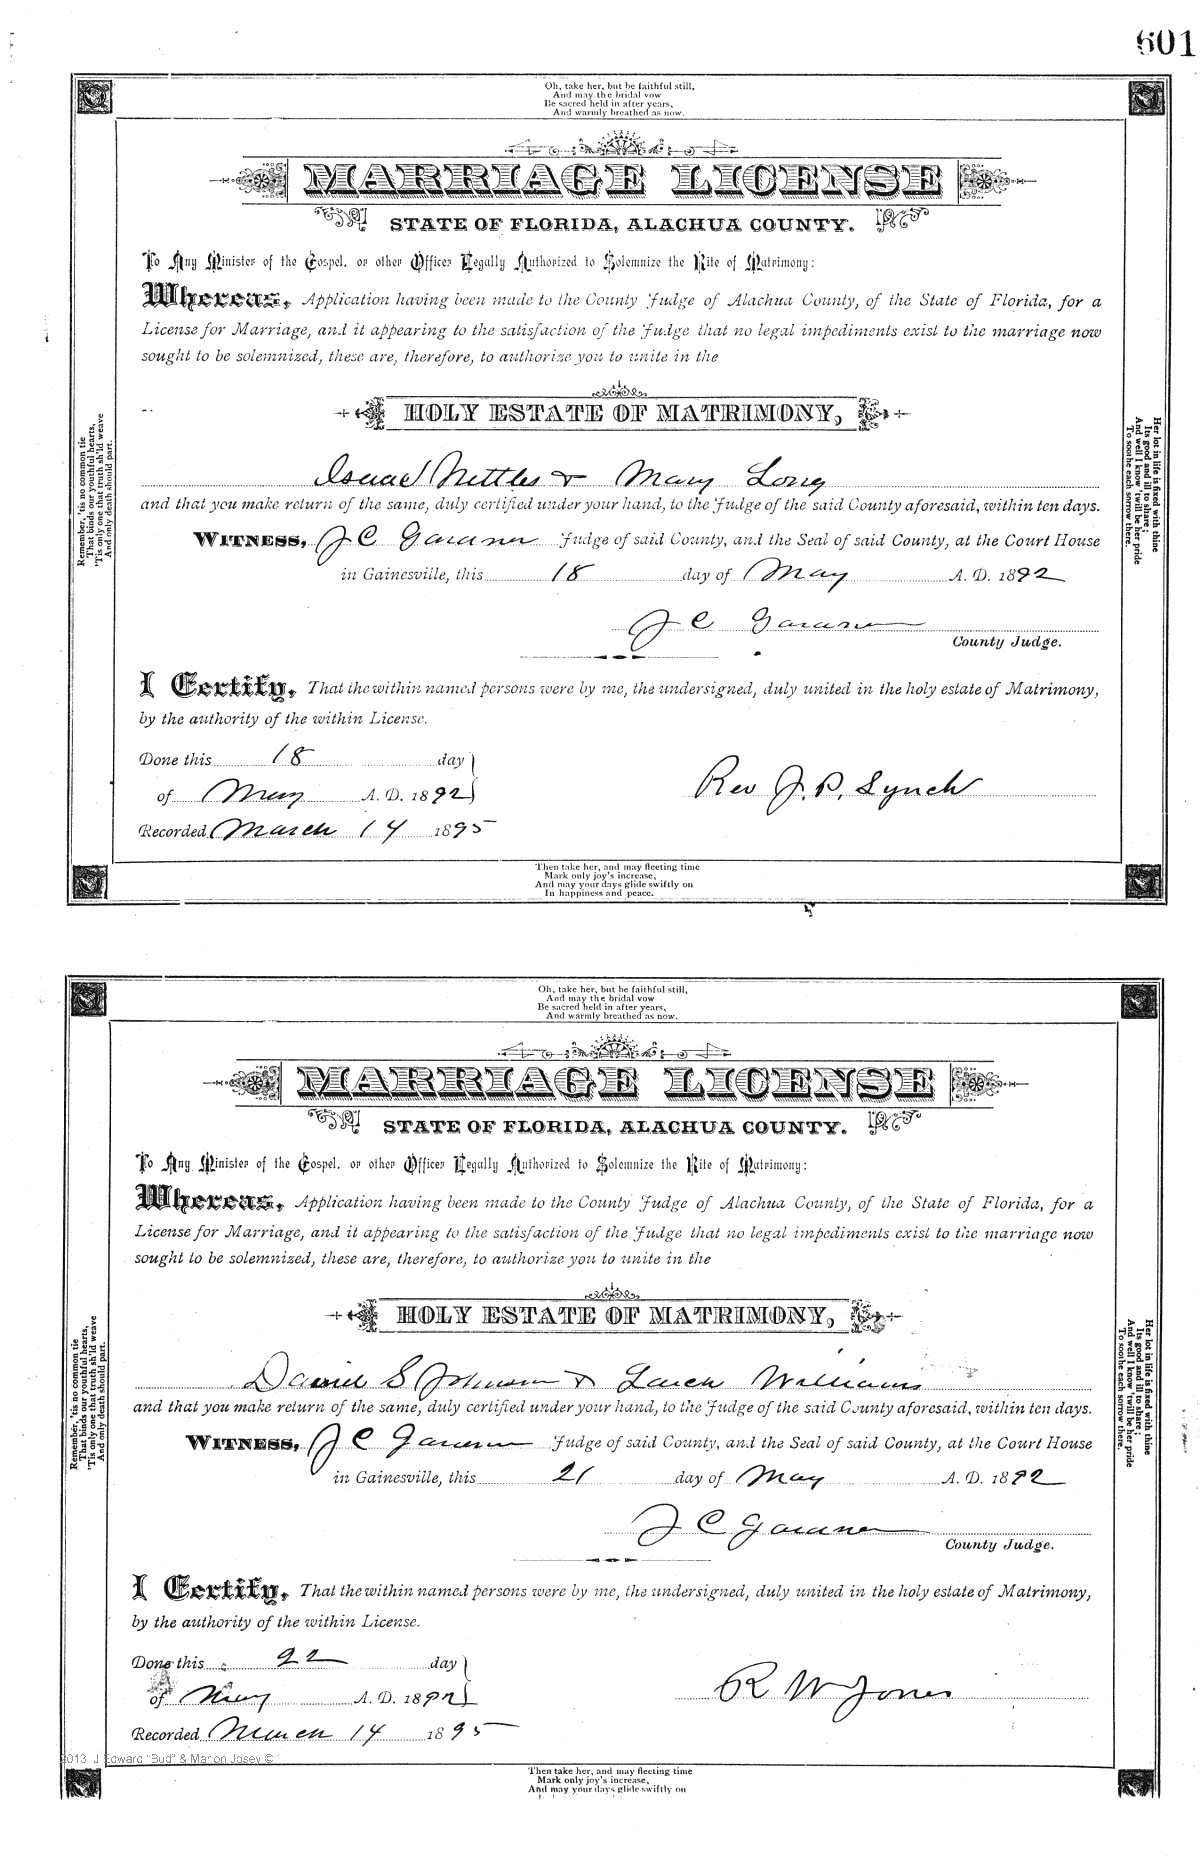 601
Oh, take her, but be faithful still,
And may the bridal vow
Be sacred held in after years,
And warmly breathed as now.
MARRIAGE LICENSE
STATE OF FLORIDA, ALACHUA COUNTY.
To Any Minister of the Gospel, or other Officer Legally Authorized to Solemnize the Rite of Matrimony:
Whereas, Application having been made to the County Judge of Alachua County, of the State of Florida, for a
License for Marriage, and it appearing to the satisfaction of the Judge that no legal impediments exist to the marriage now
sought to be solemnized, these are, therefore, to authorize you to unite in the
HOLY ESTATE OF MATRIMONY,
Remember, 'tis no common tie
That binds our youthful hearts,
'Tis only one that truth sh'ld weave
And only death should part.
Her lot in life is fixed with thine
Its good and ill to share;
And well I know 'twill be her pride
To soothe each sorrow there.
Isaac Nettles & Mary Long
and that you make return of the same, duly certified under your hand, to the Judge of the said County aforesaid, within ten days.
WITNESS, J C Gardner Judge of said County, and the Seal of said County, at the Court House
in Gainesville, this 18 day of May A. D. 1892
J C Gardner
County Judge.
I Certify, That the within named persons were by me, the undersigned, duly united in the holy estate of Matrimony,
by the authority of the within License.
Done this 18 day
of May A. D. 1892
Rev J. P. Lynch
Recorded March 14 1895
Then take her, and may fleeting time
Mark only joy's increase,
And may your days glide swiftly on
In happiness and peace.
Oh, take her, but be faithful still,
And may the bridal vow
Be sacred held in after years,
And warmly breathed as now.
MARRIAGE LICENSE
STATE OF FLORIDA, ALACHUA COUNTY.
To Any Minister of the Gospel, or other Officer Legally Authorized to Solemnize the Rite of Matrimony:
Whereas, Application having been made to the County Judge of Alachua County, of the State of Florida, for a
License for Marriage, and it appearing to the satisfaction of the Judge that no legal impediments exist to the marriage now
sought to be solemnized, these are, therefore, to authorize you to unite in the
HOLY ESTATE OF MATRIMONY,
Remember, 'tis no common tie
That binds our youthful hearts,
'Tis only one that truth sh'ld weave
And only death should part.
Her lot in life is fixed with thine
Its good and ill to share;
And well I know 'twill be her pride
To soothe each sorrow there.
David S Johnson & Williams
and that you make return of the same, duly certified under your hand, to the Judge of the said County aforesaid, within ten days.
WITNESS, J C Gardner Judge of said County, and the Seal of said County, at the Court House
in Gainesville, this 21 day of May A. D. 1892
J C Gardner
County Judge.
I Certify, That the within named persons were by me, the undersigned, duly united in the holy estate of Matrimony,
by the authority of the within License.
Done this 22 day
of May A. D. 1892
R W Jones
Recorded March 14 1895
2013 J Edward "Bud" & Marion Josey ©
Then take her, and may fleeting time
Mark only joy's increase,
And may your days glide swiftly on